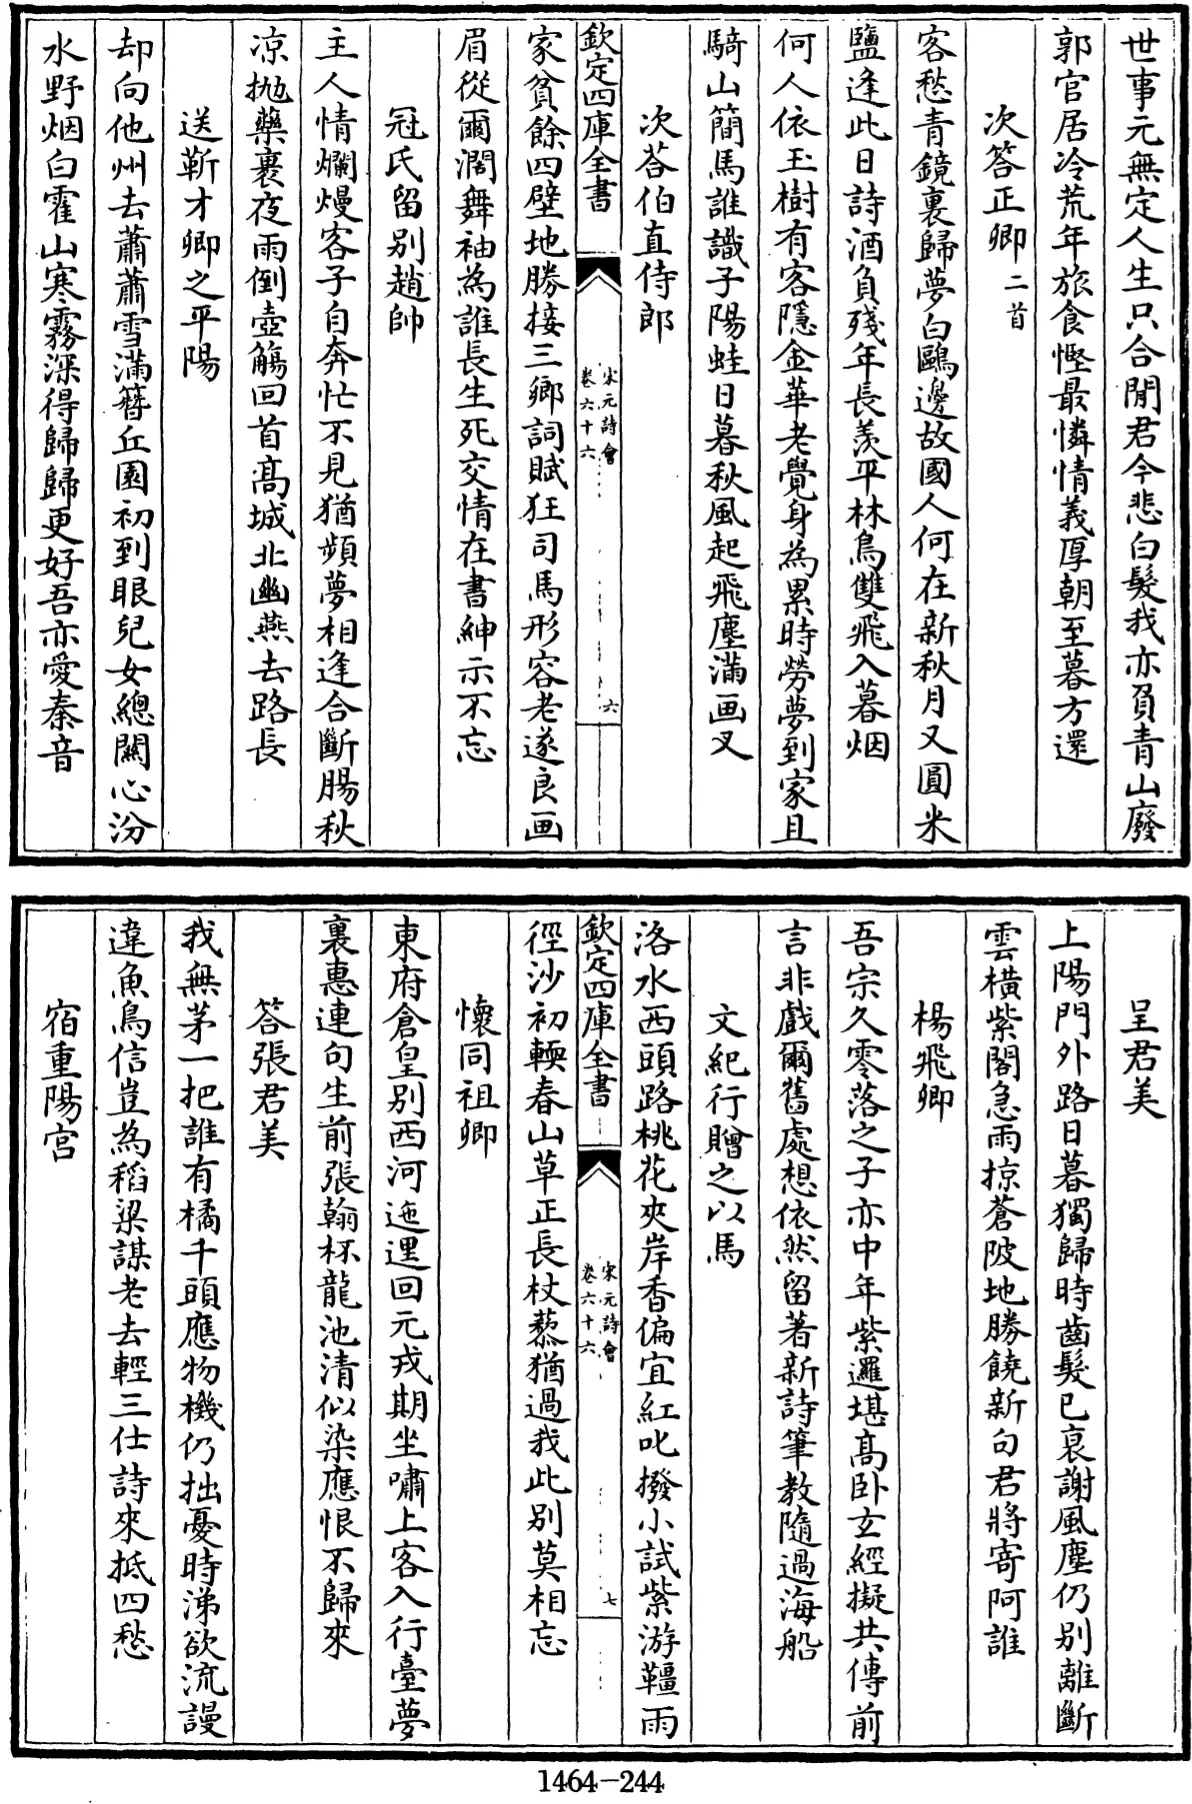 世事元無定人生只合閒君今悲白髮我亦負青山廢
郭官居冷荒年旅食慳最憐情義厚朝至暮方還
次答正卿二首
客愁青鏡裏歸夢白鷗邊故國人何在新秋月又圓米
鹽逢此日詩酒負殘年長羨平林鳥雙飛入暮烟
何人依玉樹有客隱金華老覺身為累時勞夢到家且
騎山簡馬誰識子陽蛙日暮秋風起飛塵滿画叉
次荅伯直侍郎
欽定四庫全書
宋元詩會
卷六十六
六
家貧餘四壁地勝接三鄉詞賦狂司馬形容老遂良画
眉從爾濶舞袖為誰長生死交情在書紳示不忘
冠氏留别趙帥
主人情爛熳客子自奔忙不見猶頻夢相逢合斷腸秋
凉抛藥裹夜雨倒壺觴回首髙城北幽燕去路長
送靳才卿之平陽
却向他州去蕭蕭雪滿簪丘園初到眼兒女總關心汾
水野烟白霍山寒霧深得歸歸更好吾亦愛秦音
呈君美
上陽門外路日暮獨歸時齒髮已衰謝風塵仍别離斷
雲橫紫閣急雨掠蒼陂地勝饒新句君將寄阿誰
楊飛卿
吾宗久零落之子亦中年紫邏堪髙卧玄經擬共傳前
言非戲爾舊處想依然留著新詩筆教隨過海船
文紀行贈之以馬
洛水西頭路桃花夾岸香偏宜紅叱撥小試紫游韁雨
欽定四庫全書
宋元詩會
卷六十六
七
徑沙初輭春山草正長杖藜猶過我此别莫相忘
懷同祖卿
東府倉皇别西河迤逕回元戎期坐嘯上客入行臺夢
裏惠連句生前張翰杯龍池清似染應恨不歸來
答張君美
我無茅一把誰有橘千頭應物機仍拙憂時涕欲流謾
違魚鳥信豈為稻粱謀老去輕三仕詩來抵四愁
宿重陽宫
1464-244